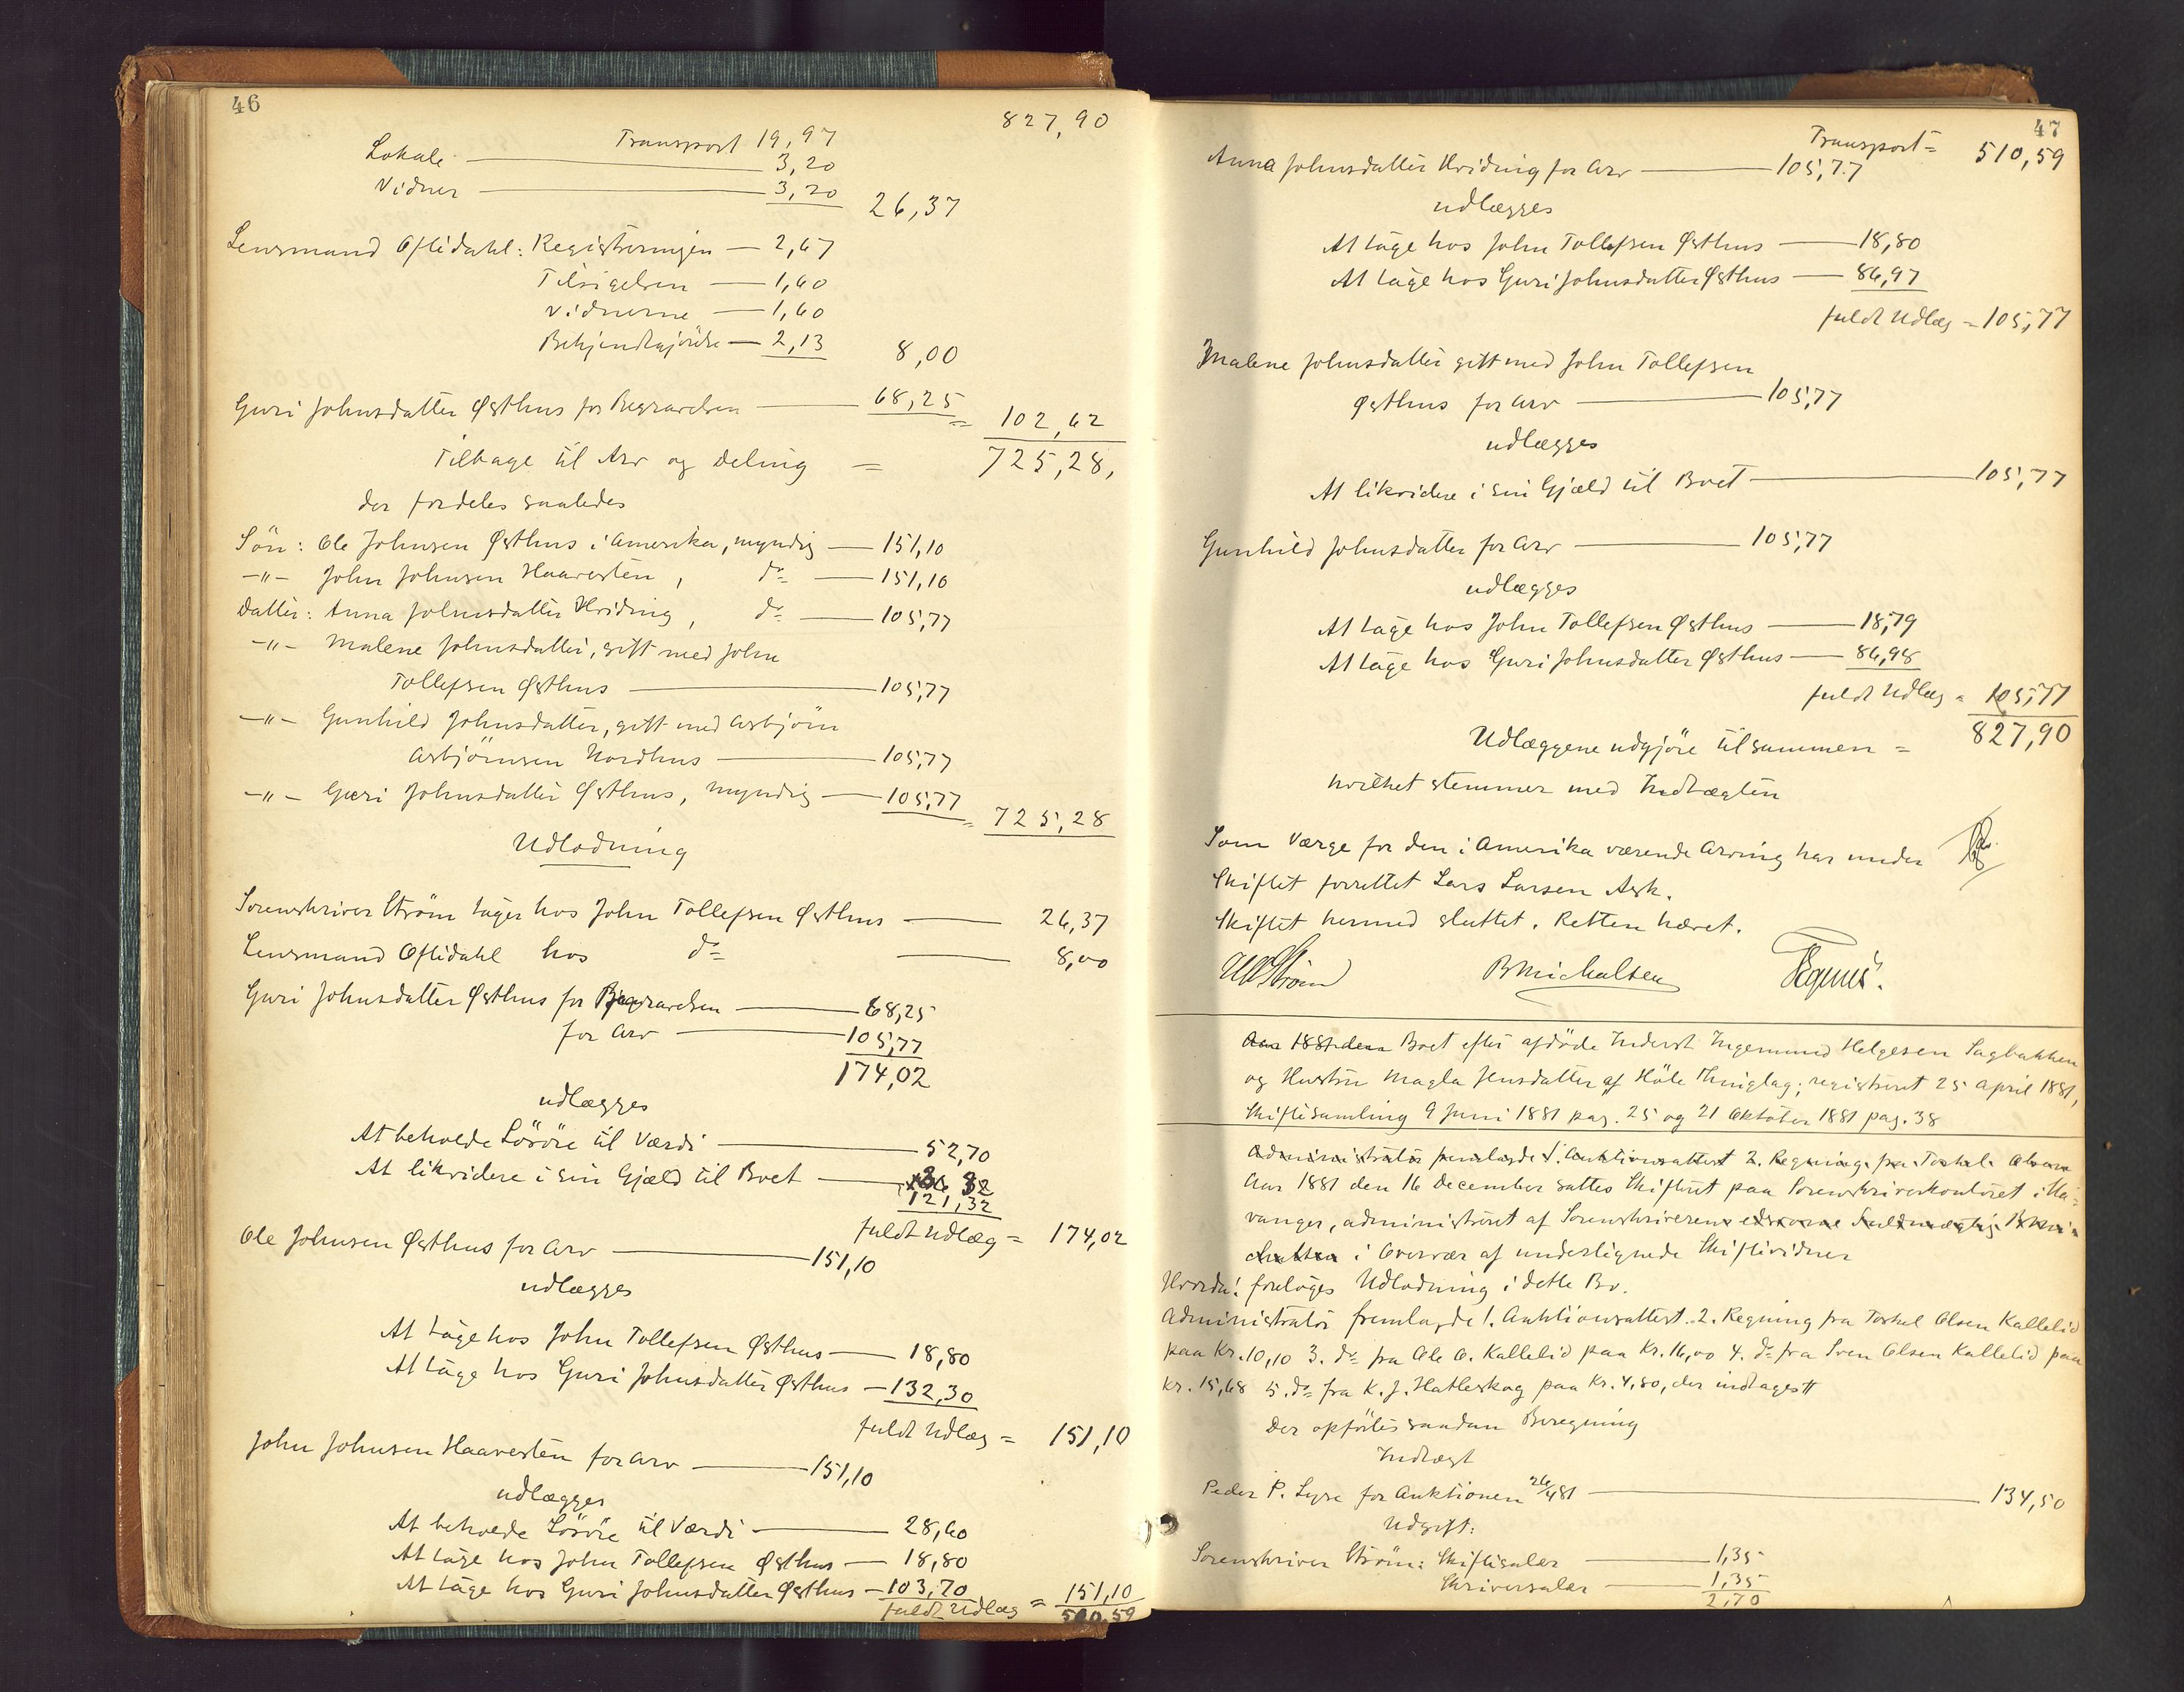 46
827,90
Transport 19,97
Lokale 3,20
Vidner 3,20 26,37
Lensmand Oftidahl: Registreringen 2,67
Tilsigelsen 1,60
Vidnerne 1,60
Bekjendtgjörelse 2,13 8,00
Guri Johnsdatter Østhus for Begravelsen 68,25 = 102,62
Tilbage til Arv og Deling = 725,28,
der fordeles saaledes
Sön: Ole Johnsen Østhus i Amerika, myndig 151,10
-"- John Johnsen Haavesten, do 151,10
Datter: Anna Johnsdatter Hriding, do 105,77
-"- Malene Johnsdatter, gift med John
Tollefsen Østhus 105,77
-"- Gunhild Johnsdatter, gift med Asbjörn
Asbjörnsen Nordhus 105,77
-"- Guri Johnsdatter Østhus, myndig 105,77 = 725,28
Udlodning
Sorenskriver Ström tager hos John Tollefsen Østhus 26,37
Lensmand Oftidahl hos do 8,00
Guri Johnsdatter Østhus for Begravelsen 68,25
for Arv 105,77
174,02
udlægges
At beholde Lösöre til Værdi 52,70
At likvidere i sin Gjæld til Boet
121,32
fuldt Udlæg = 174,02
Ole Johnsen Østhus for Arv 151,10
udlægges
At tage hos John Tollefsen Østhus 18,80
At tage hos Guri Johnsdatter Østhus 132,30
fuldt Udlæg = 151,10
John Johnsen Haavesten for Arv 151,10
udlægges
At beholde Lösöre til Værdi 28,60
At tage hos John Tollefsen Østhus 18,80
At tage hos Guri Johnsdatter Østhus 103,70
fuldt Udlæg = 151,10
510,59
47
Transport = 510,59
Anna Johnsdatter Hriding for Arv 105,77
udlægges
At tage hos John Tollefsen Østhus 18,80
At tage hos Guri Johnsdatter Østhus 86,97
fuldt Udlæg = 105,77
Malene Johnsdatter gift med John Tollefsen
Østhus for Arv 105,77
udlægges
At likvidere i sin Gjæld til Boet 105,77
Gunhild Johnsdatter for Arv 105,77
udlægges
At tage hos John Tollefsen Østhus 18,79
At tage hos Guri Johnsdatter Østhus 86,98
fuldt Udlæg = 105,77
Udlæggene udgjöre tilsammen = 827,90
hvilket stemmer med Indtægten
Som Værge for den i Amerika værende Arving har under
Skiftet forrettet Lars Larsen Ask.
Skiftet hermed sluttet. Retten hævet.
Ström BMichalsen
Aar 1881 den Boet efter afdöde Inderst Ingemund Helgesen Sagbakken
og Hustru Magla Jensdatter af Höle Thinglag; registreret 25 April 1881,
Skiftesamling 9 Juni 1881 pag. 25 og 21 Oktober 1881 pag. 38
Administrator fremlagde 1. Auktionsattest 2. Regning fra Torkel Olsen
Aar 1881 den 16 December sattes Skifteret paa Sorenskriverkontoret i Sta-
vanger, administreret af Sorenskriveren edsvorne Fuldmægtig BMi-
chalsen i Overvær af undertegnede Skiftevidner
Hvorda: foretoges Udlodning i dette Bo.
Administrator fremlagde 1. Auktionsattest. 2. Regning fra Torkel Olsen Kallelid
paa Kr. 10,10 3. do fra Ole O. Kallelid paa Kr. 16,00 4. do fra Sven Olsen Kallelid paa
Kr. 15,68 5. do fra K. J. Hatleskog paa Kr. 4,80, der indtages
Der opförtes saadan Beregning
Indtægt
Peder P. Lyse for Auktionen 26/4 81 134,50
Udgift:
Sorenskriver Ström: Skiftesalær 1,35
Skriversalær 1,35
2,70